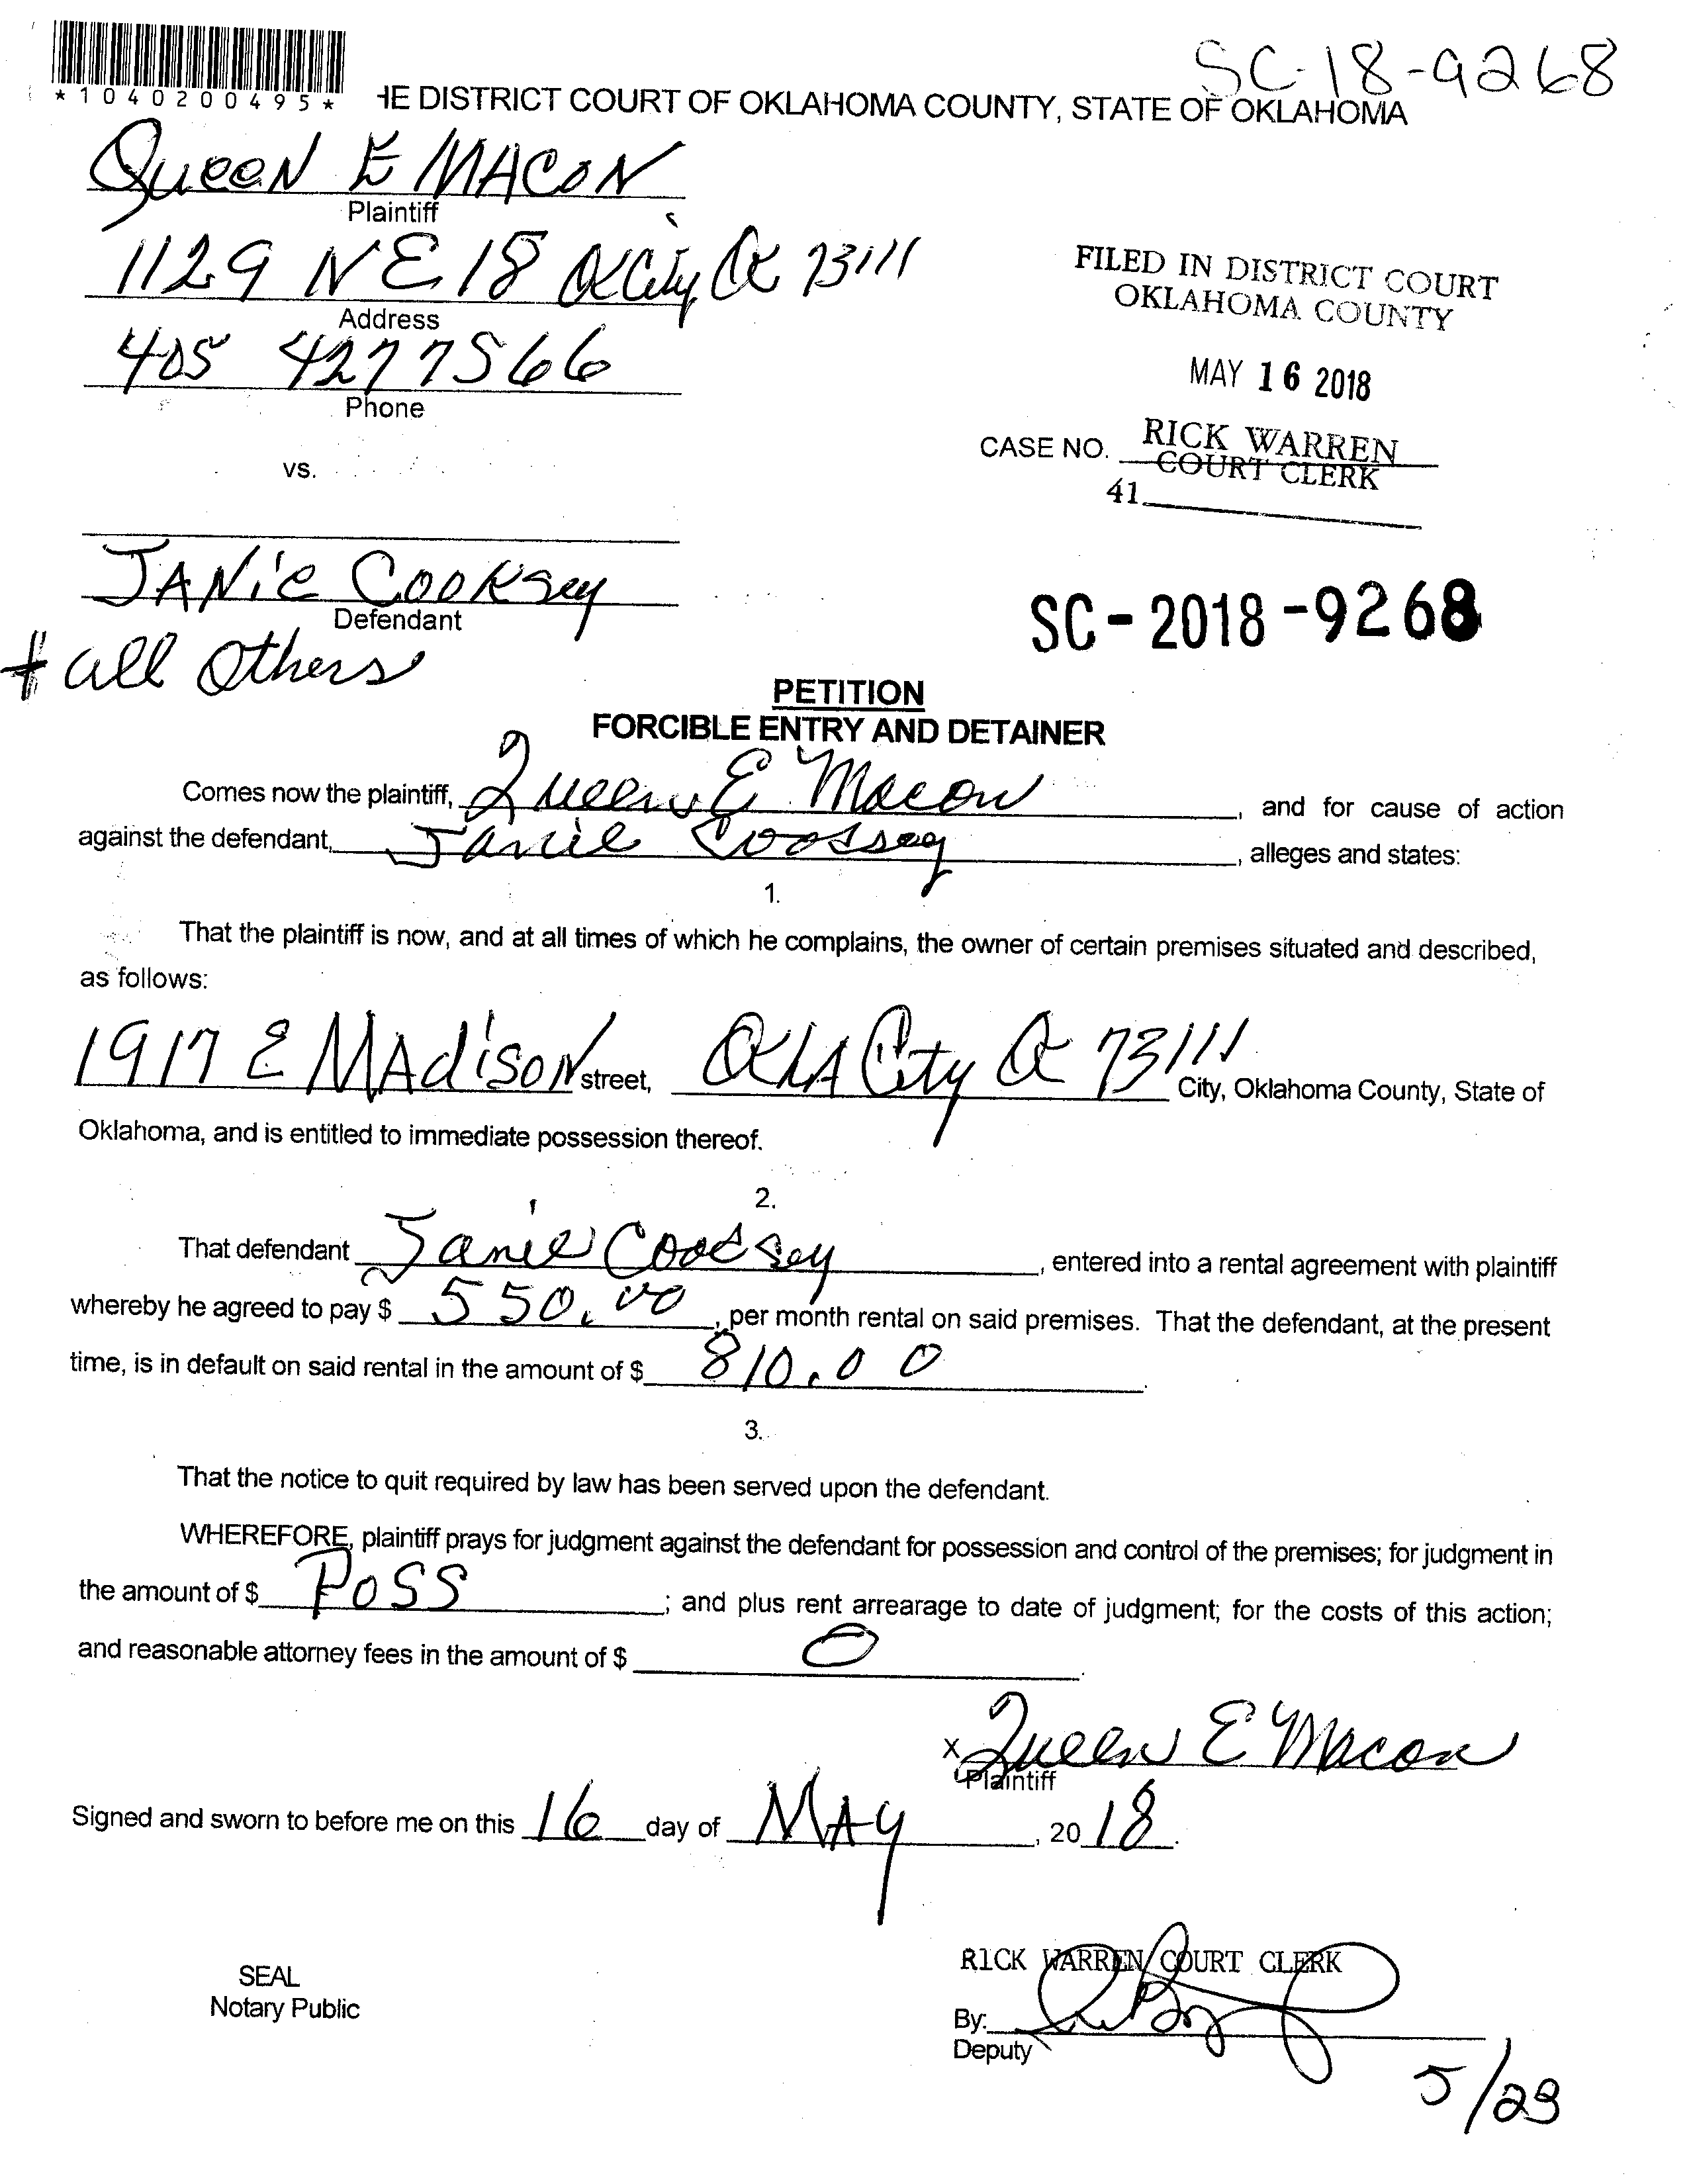 SC-18-9268
*1040200495*
HE DISTRICT COURT OF OKLAHOMA COUNTY, STATE OF OKLAHOMA
Queen E Macon
Plaintiff
1129 NE 18 OKCity OK 73111
Address
405 427 7566
Phone
FILED IN DISTRICT COURT
OKLAHOMA COUNTY
MAY 16 2018
RICK WARREN
CASE NO. COURT CLERK
41
vs.
JANie Cooksey
Defendant
+ all Others
SC-2018-9268
PETITION
FORCIBLE ENTRY AND DETAINER
Comes now the plaintiff, Queen E Macon, and for cause of action
against the defendant, Janie Cooksey, alleges and states:
1.
That the plaintiff is now, and at all times of which he complains, the owner of certain premises situated and described,
as follows:
1917 E MAdisoN street, OKLA City OK 73111 City, Oklahoma County, State of
Oklahoma, and is entitled to immediate possession thereof.
2.
That defendant Janie Cooksey, entered into a rental agreement with plaintiff
whereby he agreed to pay $ 550.00, per month rental on said premises. That the defendant, at the present
time, is in default on said rental in the amount of $ 810.00.
3.
That the notice to quit required by law has been served upon the defendant.
WHEREFORE, plaintiff prays for judgment against the defendant for possession and control of the premises; for judgment in
the amount of $ POSS; and plus rent arrearage to date of judgment; for the costs of this action;
and reasonable attorney fees in the amount of $ 0.
x Queen E Macon
Plaintiff
Signed and sworn to before me on this 16 day of MAy, 2018.
RICK WARREN COURT CLERK
SEAL
Notary Public
By:
Deputy
5/23